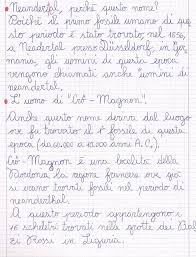 Neandertal, perché questo nome?
Poiché il primo fossile umano di que
sto periodo è stato trovato nel 1856,
a Neadertal presso Düsseldorf, in Ger
mania, gli uomini di questa epoca
vengono chiamati anche uomini di
neandertal.
L'uomo di "Crô-Magnon".
Anche questo nome deriva dal luogo
ove fu trovato il 1° fossile di questa
epoca (da 40.000 a 10.000 anni A.C.).
Crô-Magnon è una località della
Dordona, la regione francese ove già
si erano trovati fossili nel periodo di
neanderthal.
A questo periodo appartengono i
16 scheletri trovati nella grotte dei Bal
zi Rossi in Liguria.